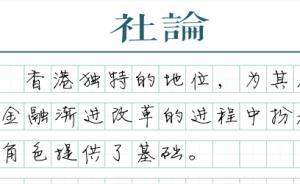 社論
香港独特的地位，为其
金融渐进改革的进程中扮
角色提供了基础。